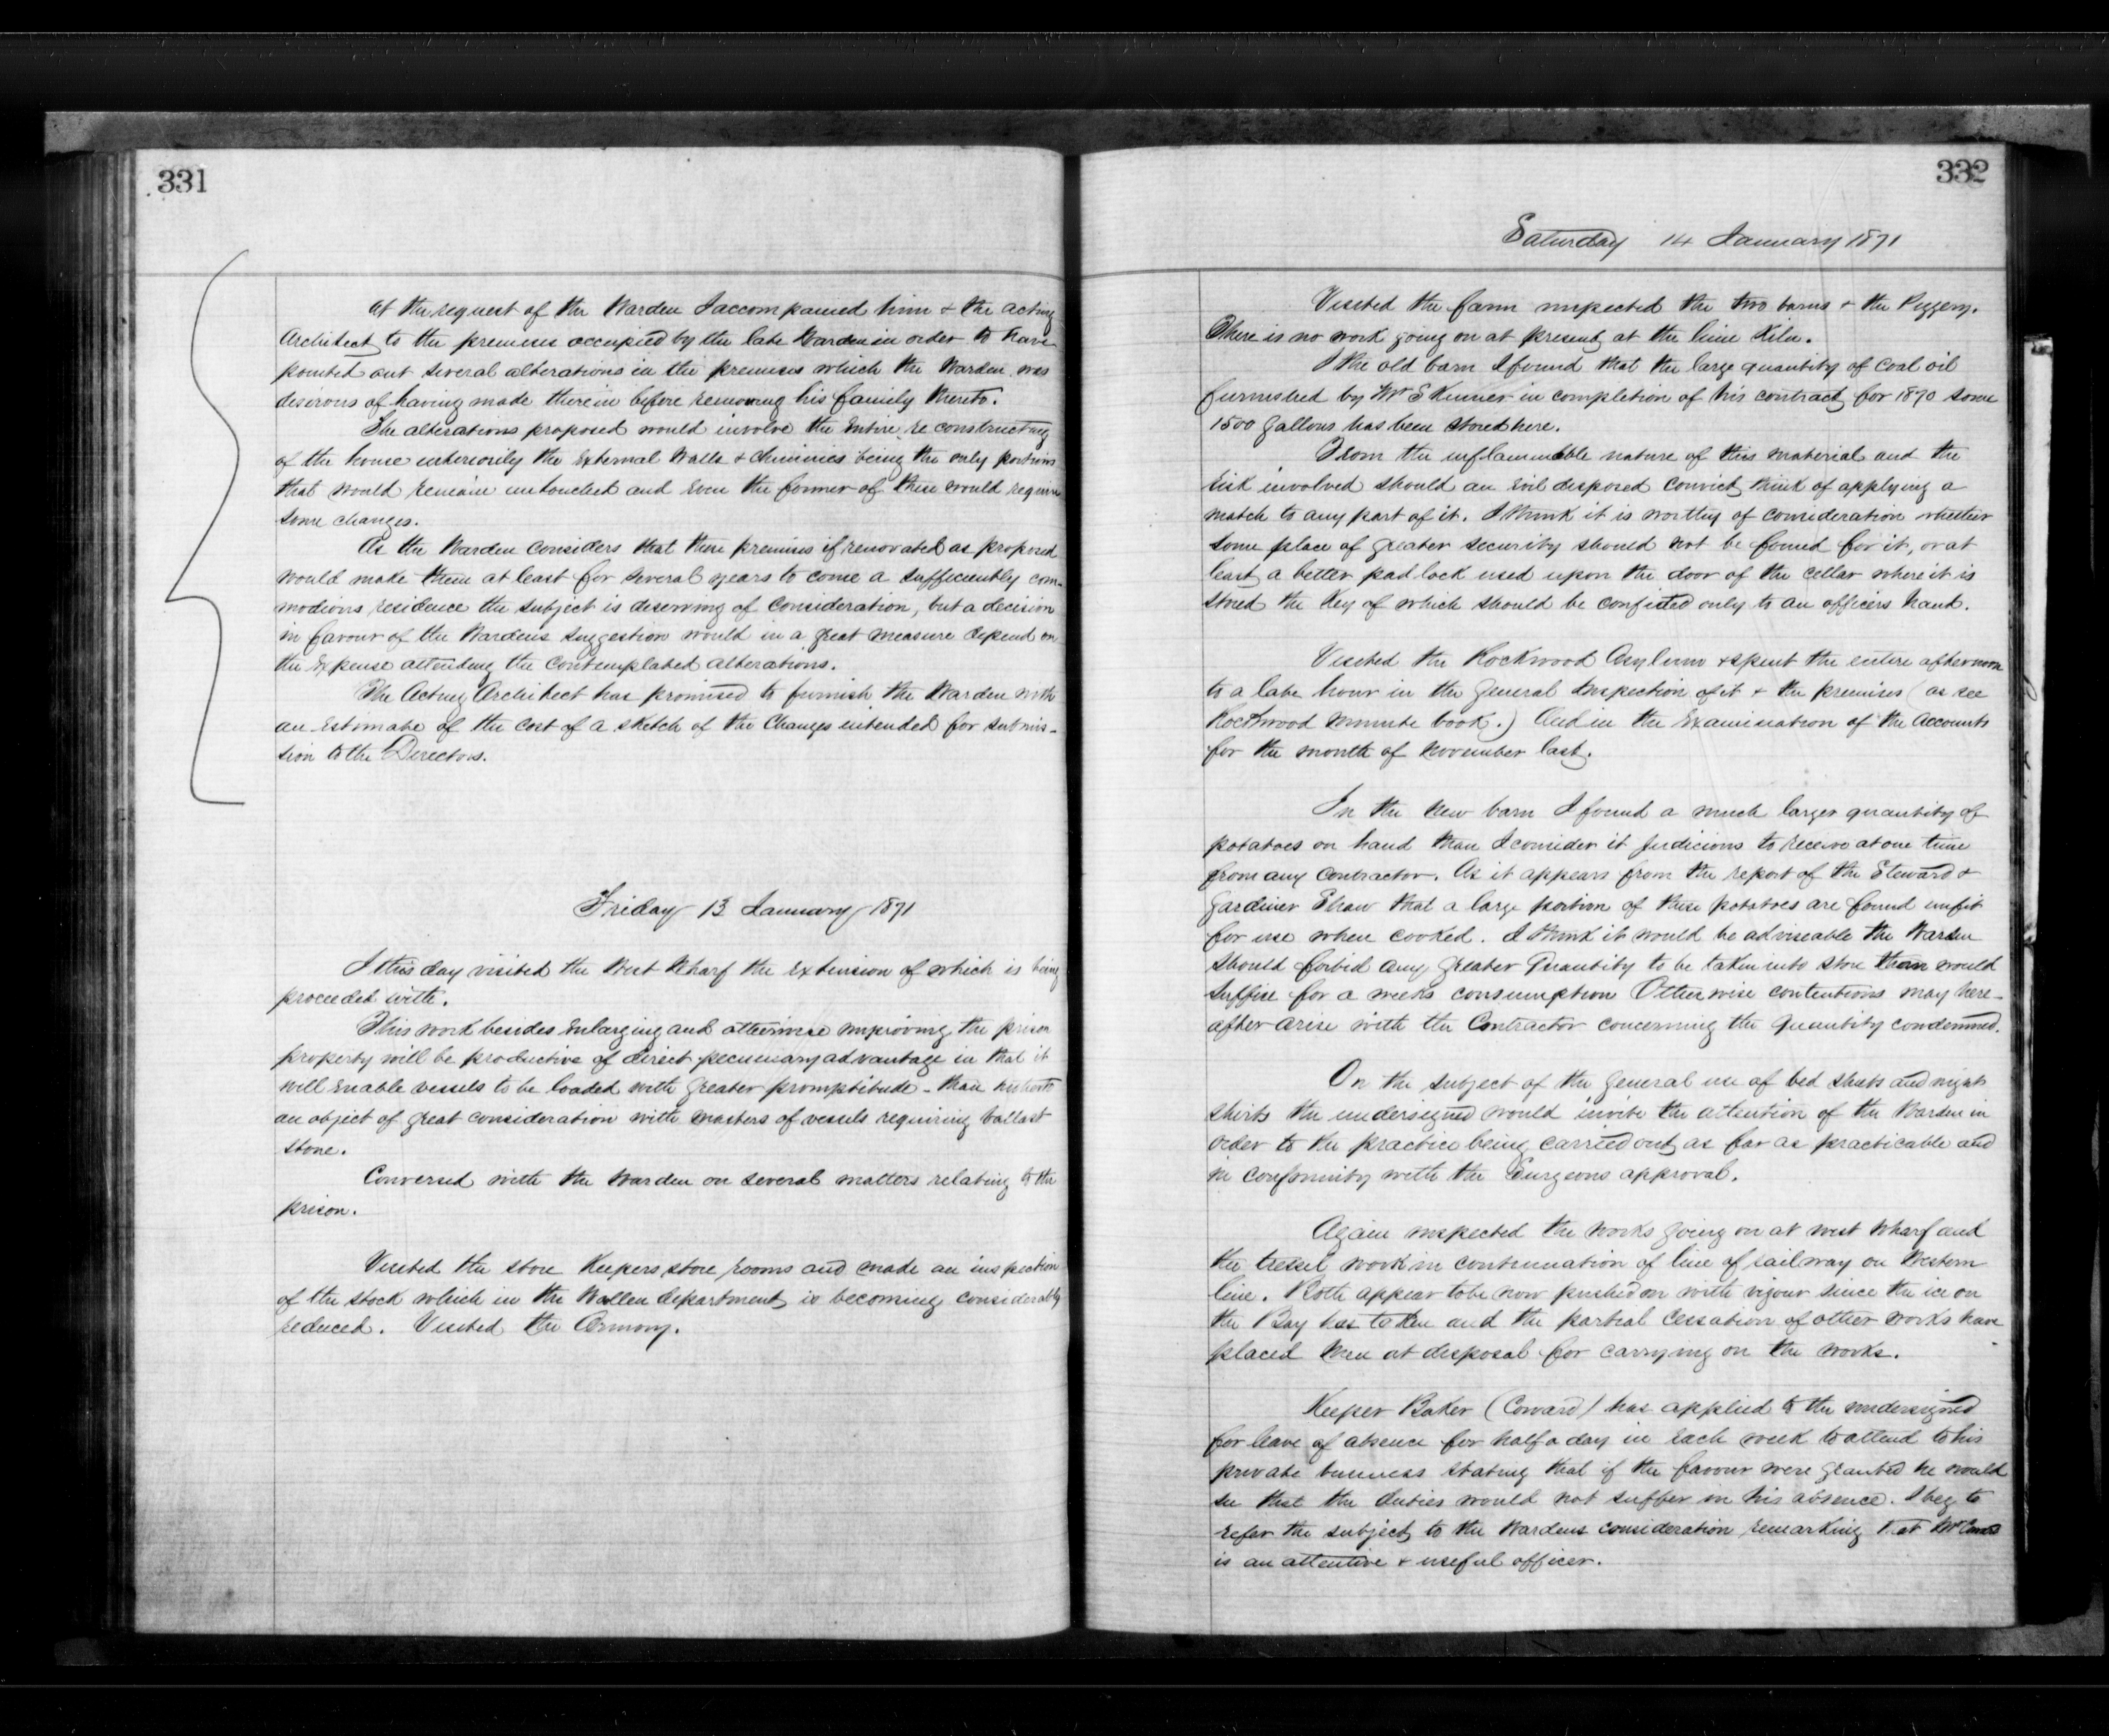 331
At the request of the Warden I accompanied him & the acting
Architect to the premises occupied by the late Warden in order to have
pointed out several alterations in the premises which the Warden was
desirous of having made therein before removing his family thereto.
The alterations proposed would involve the Entire re constructing
of the house interiorily the External Walls & chimnies being the only portions
that would remain untouched and even the former of these would require
some changes.
As the Warden considers that these premises if renovated as proposed
would make them at least for several years to come a sufficiently com-
modious residence the subject is deserving of consideration, but a decision
in favour of the Wardens suggestion would in a great measure depend on
the Expense attending the contemplated alterations.
The Acting Architect has promised to furnish the Warden with
an Estimate of the cost of a sketch of the Changes intended for submis-
sion to the Directors.
Friday 13 January 1871
I this day visited the West Wharf the Extension of which is being
proceeded with.
This work besides Enlarging and otherwise improving the prison
property will be productive of direct pecuniary advantage in that it
will Enable vessels to be loaded with greater promptitude - than hitherto
an object of great consideration with masters of vessels requiring ballast
stone.
Conversed with the Warden on several matters relating to the
prison.
Visited the store Keepers store rooms and made an inspection
of the stock which in the Wollen department is becoming considerably
reduced. Visited the Armory.
332
Saturday 14 January 1871
Visited the farm inspected the two barns & the Piggery.
There is no work going on at present at the lime Kiln.
I the old barn I found that the large quantity of Coal oil
furnished by Mr S in completion of his contract for 1870 some
1500 gallons has been stored here.
From the inflammable nature of this material and the
risk involved should an Evil disposed convict think of applying a
match to any part of it. I think it is worthy of consideration whether
some place of greater security should not be found for it, or at
least a better pad lock used upon the door of the cellar where it is
stored the Key of which should be confided only to an officers hand.
Visited the Rockwood Asylum & spent the entire afternoon
to a late hour in the General Inspection of it & the premises (as see
Rockwood minute book.) And in the Examination of the Accounts
for the month of November last.
In the New barn I found a much larger quantity of
potatoes on hand than I consider it Judicious to receive at one time
from any Contractor. As it appears from the report of the Steward &
Gardiner Shaw that a large portion of these potatoes are found unfit
for use when cooked. I think it would be adviseable the Warden
should forbid any greater Quantity to be taken into store than would
suffice for a weeks consumption Otherwise contentions may here-
after arise with the Contractor concerning the quantity condemned.
On the subject of the general use of bed sheets and night
shirts the undersigned would invite the attention of the Warden in
order to the practice being carried out as far as practicable and
in conformity with the Surgeons approval.
Again inspected the works going on at west wharf and
the tressel work in continuation of line of railway on Western
line. Both appear to be now pushed on with vigour since the ice on
the Bay has taken and the partial cessation of other works have
placed men at disposal for carrying on the works.
Keeper Baker (Coward) has applied to the undersigned
for leave of absence for half a day in Each week to attend to his
private business stating that if the favour were granted he would
see that the duties would not suffer in his absence. I beg to
refer the subject to the Wardens consideration remarking that Mr Coward
is an attentive & useful officer.